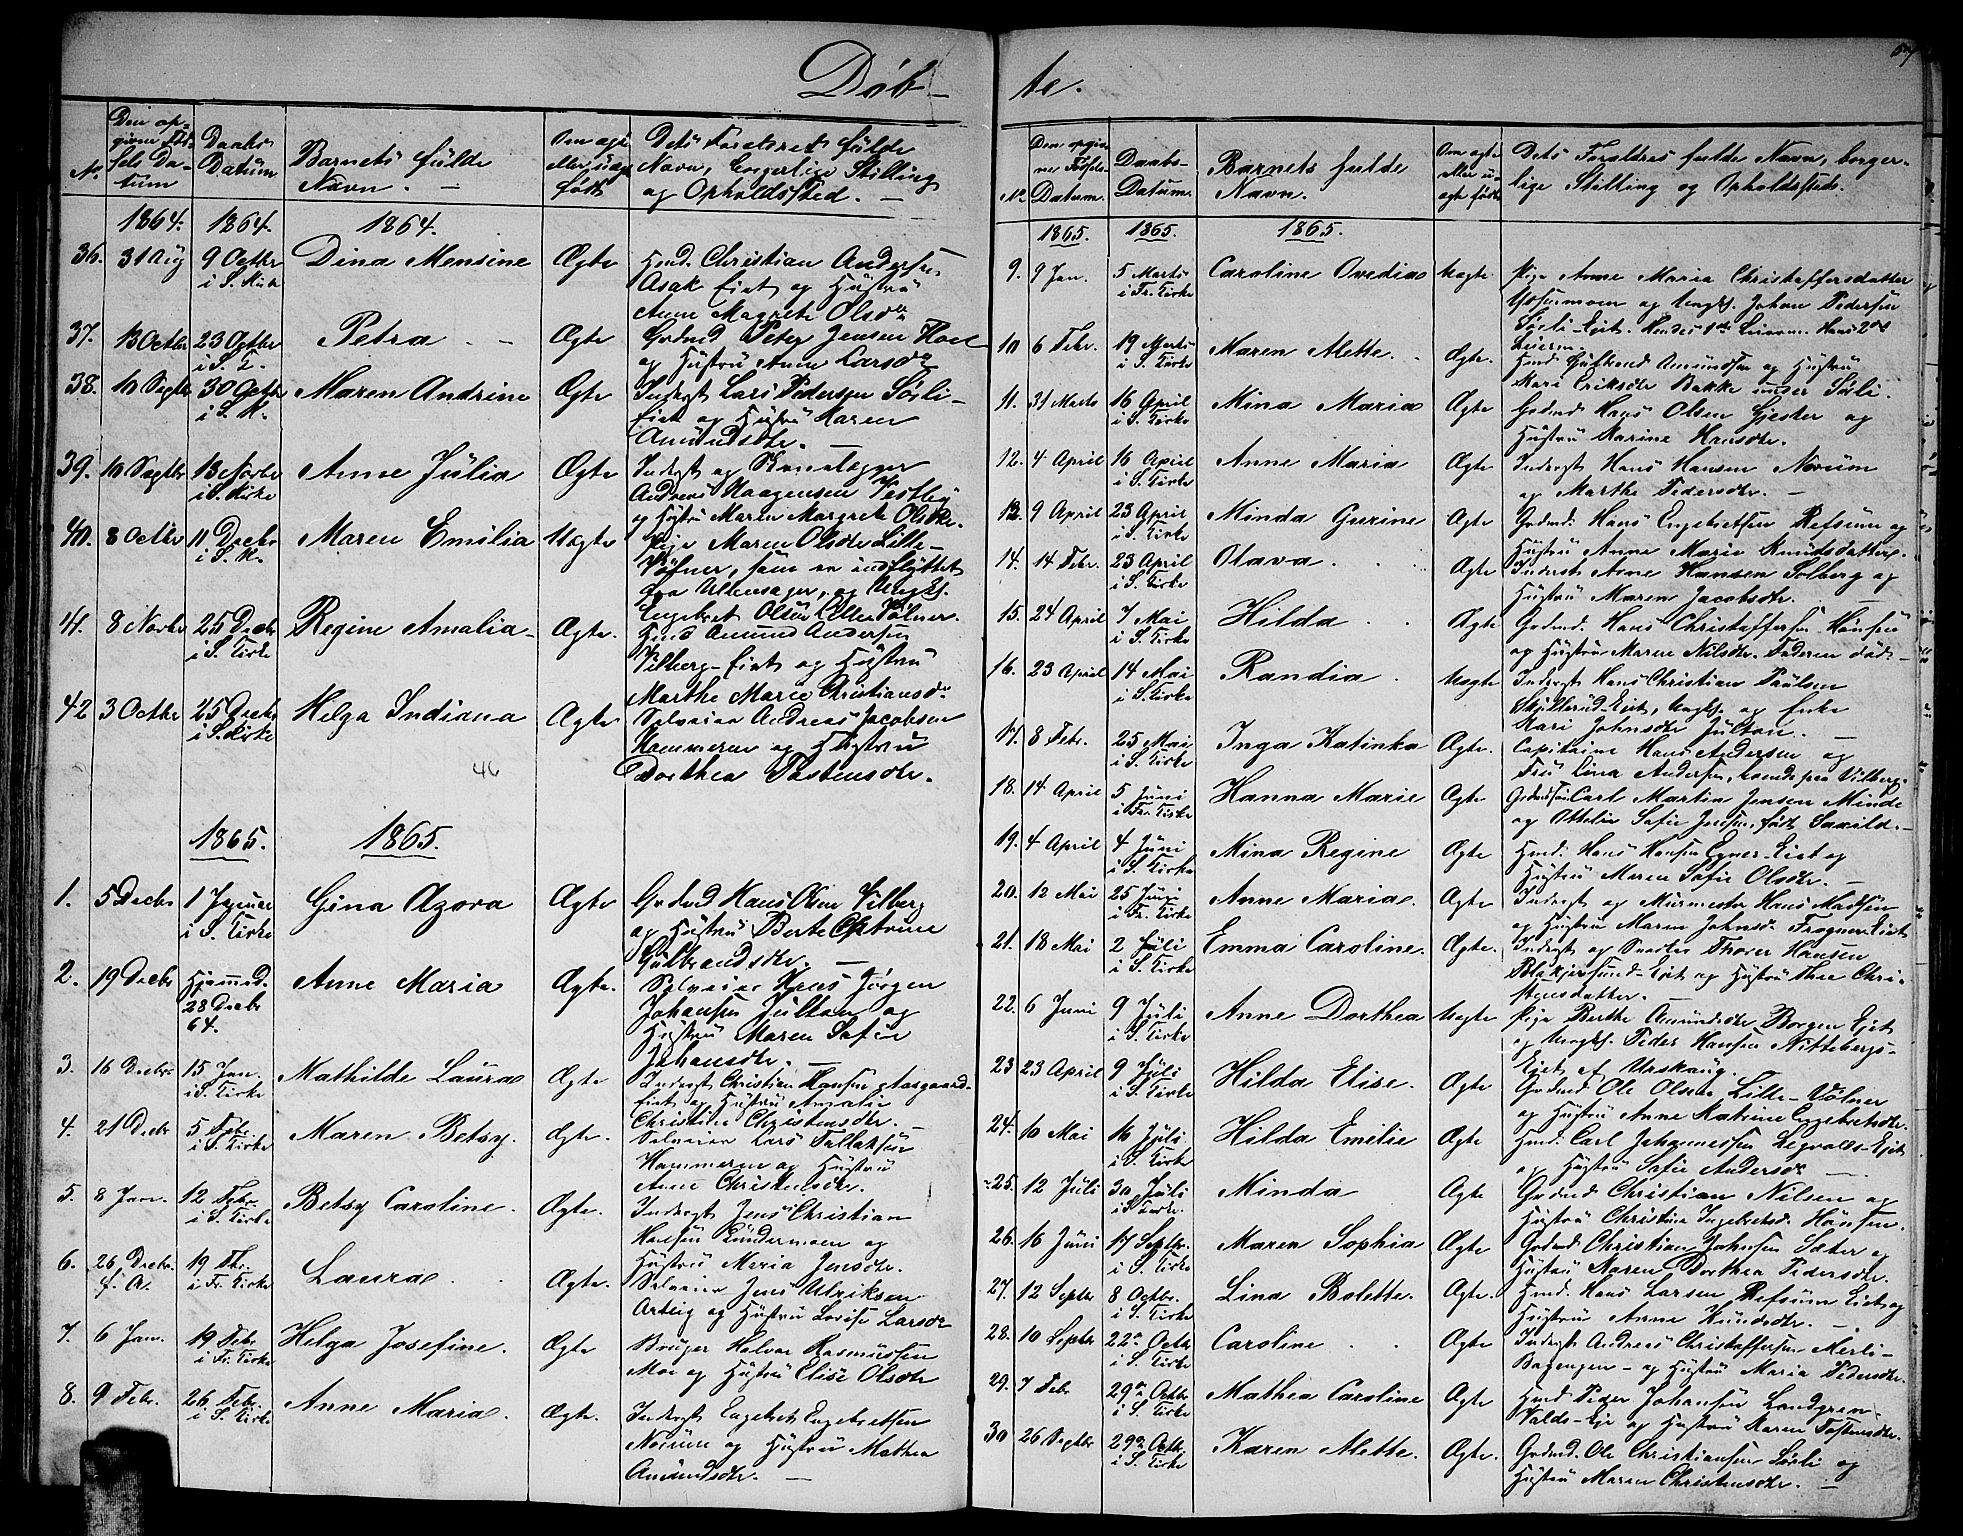 Døb-
Den op-
givne Fød-
sels Da-
tum
Daabs
Datum
Barnets fulde
Navn. —
Om ægte
eller uægte
født
Dets Forældres fulde
Navn, borgerlige Stilling
og Opholdssted. —
No
1864. 1864. 1864.
36. 31 Aug 9 Octbr Dina Mensine Ægte Hmd. Christian Andersen
i S. Kirke Asak Eiet og Hustru
Anne Magrete Olsdr
37. 13 Octbr 23 Octbr Petra - - Ægte Grdmd Peter Jensen Hoel
i S. K. og Hustru Anne Larsdr
38. 10 Septbr 30 Octbr Maren Andrine Ægte Inderst Lars Pedersen Søsli-
i S. K. Eiet og Hustru Maren
Amundsdtr. —
39. 10 Septbr 13 Novbr Anne Julia Ægte Inderst og Steenlægger
i S. Kirke Andreas Haagensen Vestby
og Hustru Maren Margrete Olsdtr.
40. 8 Octbr 11 Decbr Maren Emilia Uægte Pige Maren Olsdtr Lille-
i S. K. Vølner, som er indflyttet
fra Ullensager, og Ungk.
Engebret Olsen Lille Vølner.
41. 8 Novbr 25 Decbr Regine Amalia- Ægte. Hmd Amund Andersen
i S. Kirke Vilberg-Eiet og Hustru
Marthe Marie Christiansdr
42 3 Octbr 25 Decbr Helga Indiana Ægte Selveier Andreas Jacobsen
i S. Kirke Hammeren og Hustru
Dorthea Tostensdtr.
46
1865. 1865.
1. 5 Decbr 1 Januar Gina Azora Ægte Grdmd Hans Olsen Vilberg
i S. Kirke og Hustru Berte Cathrine
Gulbrandsdtr. —
2. 19 Decbr Hjemmed. Anne Maria Ægte. Selveier Hans Jørgen
28 Decbr Johansen Jultan og
64. Hustru Maren Sofie
Johansdtr. —
3. 16 Decbr 15 Jan. Mathilde Laura Ægte Inderst Christian Hansen
i S. Kirke Eiet og Hustru Amalie
Christine Christensdtr. —
4. 21 Decbr 5 Febr. Maren Betsy. Ægte. Selveier Lars Tollefsen
i S. Kirke Hammeren og Hustru
Anne Christensdtr.
5. 8 Jan. 12 Febr. Betsy Caroline. Ægte. Inderst Jens Christian
i S. Kirke Hansen Rundermoen og
Hustru Maria Jensdtr.
6. 26 Decbr. 19 Fbr. Laura - Ægte. Selveier Jens Ulriksen
f. A. i Fr. Kirke Arteig og Hustru Lovise Larsdtr
7. 6 Jan. 19 Febr Helga Josefine. Ægte. Bruger Halvor Rasmussen
i Fr. Kirke Moe og Hustru Elise Olsdtr
8. 9 Febr. 26 Febr. Anne Maria. Ægte. Inderst Engebret Engebretsen
i S. Kirke Norum og Hustru Mathea
Amundsdtr. —
te.
67
No Den opgiv-
ne Fødsels-
Datum.
Daabs-
Datum.
Barnets fulde
Navn.
Om ægte
eller u-
ægte født
Dets Forældres fulde Navn, borger-
lige Stilling og Opholdssted.
1865. 1865. 1865.
9. 9 Jan. 5 Marts Caroline Ovedia Uægte Pige Anne Maria Christoffersdatter
i Fr. Kirke og Ungk. Johan Pedersen
Søsli-Eiet. Hendes 1ste Leierm. Hans 2det
Leierm.
10 6 Febr. 19 Marts Maren Alette. Ægte. Hmd. Gulbrand Amundsen og Hustru
i S. Kirke Mari Eriksdtr Bakke under Søsli.
11. 31 Marts 16 April Mina Maria Ægte Grdmd. Hans Olsen Gjester og
i S. Kirke Hustru Karine Hansdtr.
12. 4 April 16 April Anne Maria Ægte Inderst Hans Hansen Norum
i S. Kirke og Marthe Pedersdtr. —
13. 9 April 23 April Minda Gurine Ægte Grdmd: Hans Engebretsen Refsum og
i S. Kirke Hustru Anne Marie Knudsdatter.
14. 14 Febr. 23 April Olava. Ægte Inderst Arne Hansen Solberg og
i S. Kirke Hustru Maren Jacobsdtr.
15. 24 April 7 Mai Hilda Ægte Grdmd. Hans Christoffersen Hønsen
i S. Kirke og Hustru Maren Nilsdtr. Faderen død-
16. 23 April 14 Mai Randia. Uægte Inderst Hans Christian Paulsen
i S. Kirke Eiet, Ungk. og Enke
Kari Johnsdtr Jultan. —
17. 8 Febr. 25 Mai Inga Katinka Ægte. Capitaine Hans Andersen og
i S. Kirke Fru Lina Andersen, boende paa Vilberg.
18. 14 April 5 Juni Hanna Marie Ægte Carl Martin Jensen Minde
i Fr. Kirke og Ottilia Sofie Jensen, født
19. 4 April 4 Juni Mina Regine Ægte Hmd. Hans Hansen Egner-Eiet og
i S. Kirke Hustru Maren Sofie Olsdtr. —
20. 12 Mai 25 Juni Anne Maria. Ægte Inderst og Murmester Hans Madsen
i Fr. Kirke og Hustru Maren Johnsd. Frogner Eiet
21. 18 Mai 2 Juli Emma Caroline. Ægte. Inderst og Snedker Thorer Hansen
i S. Kirke Blakjersund-Eiet og Hustru Thea Chri-
stensdatter. —
22. 6 Juni 9 Juli Anne Dorthea Uægte Pige Berthe Amundsdtr Borgen Eiet
i S. Kirke og Ungk. Peder Hansen Nitteberg-
Eiet af Urskoug.
23 23 April 9 Juli Hilda Elise. Ægte. Grdmd. Ole Olsen Lille-Vølner
i S. Kirke og Hustru Anne Katrine Engebretsdtr.
24. 10 Mai 16 Juli Hilda Emilie Ægte Hmd. Carl Johannessen Legvolds-Eiet
i S. Kirke og Hustru Sofie Andersdr —
25. 12 Juli 30 Juli Minda Ægte Grdmd Christian Nilsen og
i S. Kirke. Hustru Christine Ingebretsd. Hønsen.
26. 16 Juni 17 Septbr. Maren Sophia Ægte Grdmd. Christian Johnsen Sæter og
i S. Kirke Hustru Karen Dorthea Pedersdtr.
27. 12 Septbr 8 Octbr. Lina Bolette. Ægte. Hmd. Hans Larsen Refsum Eiet og
i S. Kirke Hustru Anne Knudsdtr. —
28. 10 Septbr 22de Octbr Caroline Ægte Inderst Andreas Christoffersen Merli-
i S. Kirke Bagengen - og Hustru Maria Pedersdtr.
29. 7 Febr 29de Octbr Mathea Caroline Ægte Hmd Peder Johansen Landgren-
i S. Kirke Valds-Eie og Hustru Karen Tostensdtr.
30 26 Septbr 29de Octbr. Karen Alette. Ægte. Grdmd. Ole Christiansen Søsli og
i S. Kirke Hustru Maren Christensdtr. —